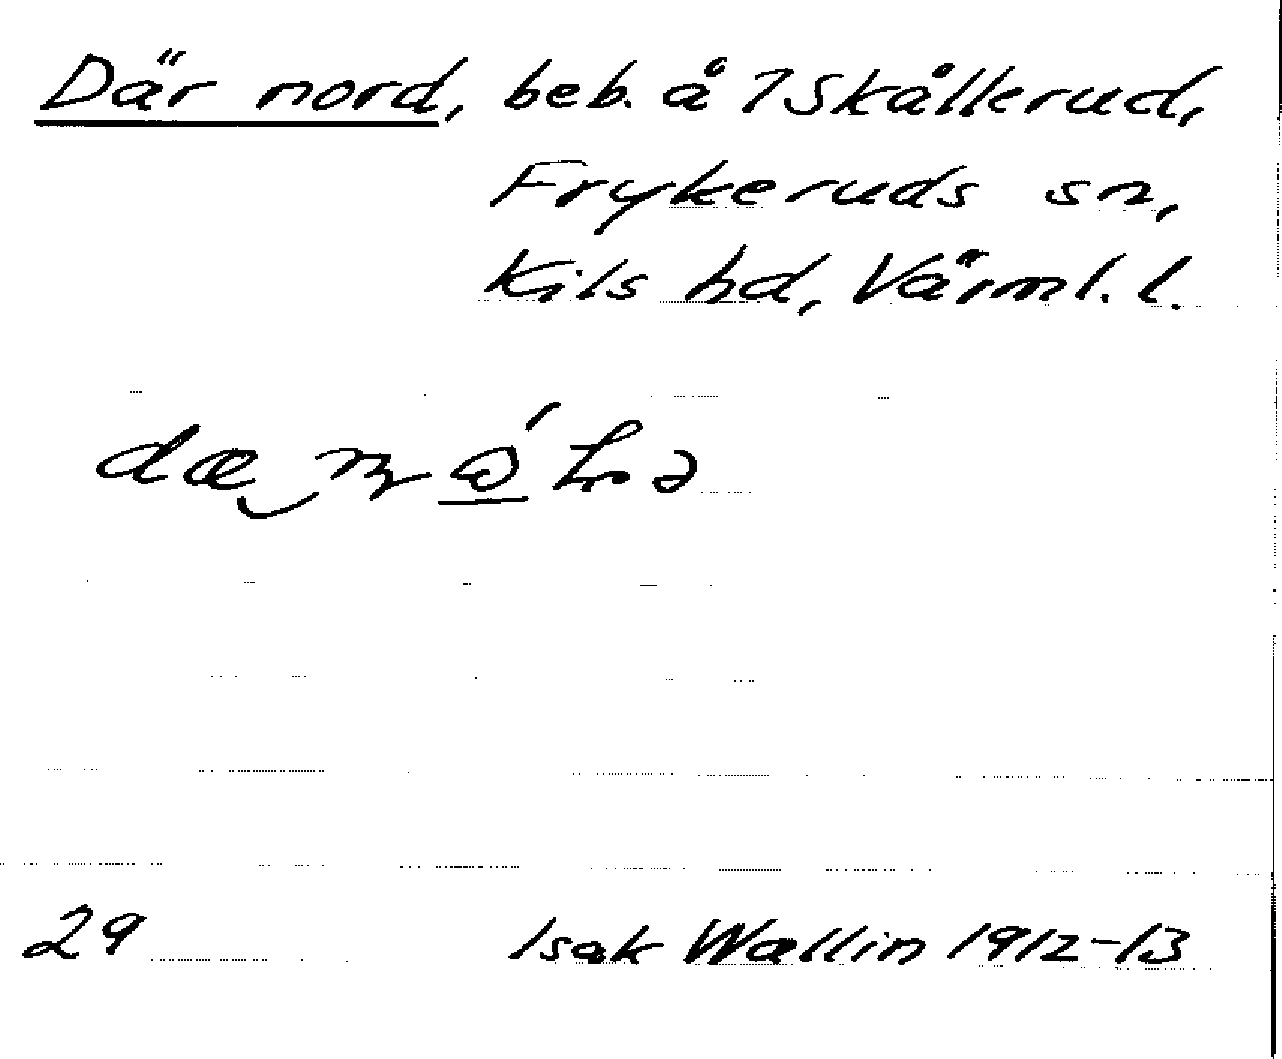 Där nord, beb. å 7 Skållerud,
Frykeruds sn,
Kils hd, Värml. l.
29
Isak Wallin 1912-13